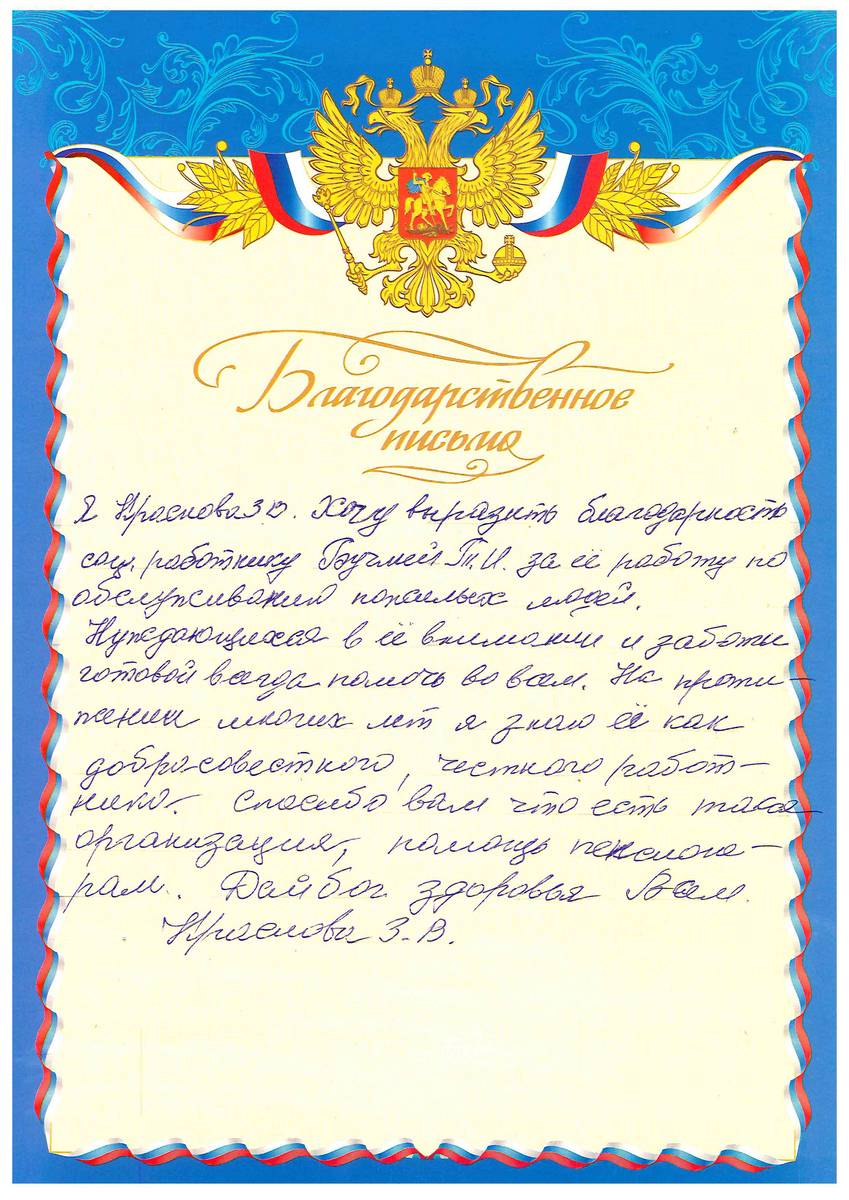 Благодарственное
письмо
Я Краснова З В. Хочу выразить благодарность
соц. работнику Бучмей Т.И. за её работу по
обслуживанию пожилых людей.
Нуждающихся в её внимании и заботы
готовой всегда помочь во всем. На протя-
жении многих лет я знаю её как
добросовестного, честного работ-
ника. Спасибо вам что есть такая
организация, помощь
рам. Дай бог здоровья Вам.
Краснова З.В.